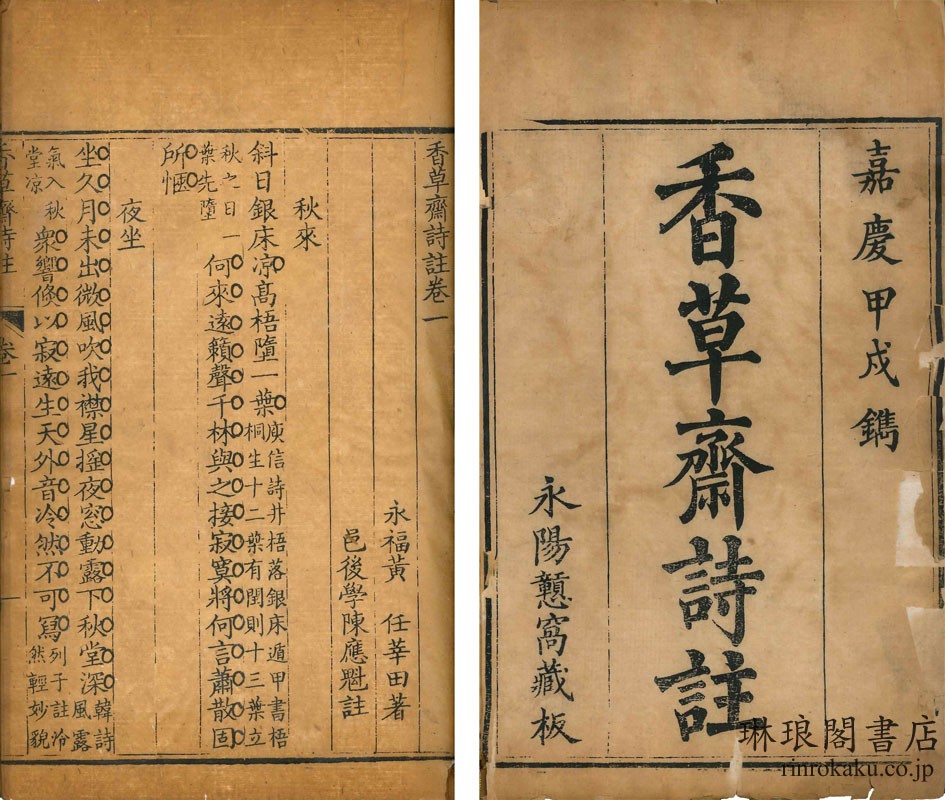 嘉慶甲戌鐫
香草齋詩註
永陽窩藏板
香草齋詩註卷一
永福黃 任莘田著
邑後學陳應魁註
秋來
斜日銀床凉高梧墮一葉庾信詩井梧落銀床遁甲書梧桐生十二葉有閏則十三葉立
秋之日一葉先墮何來遠籟聲千林與之接寂寞將何言蕭散固
所愜
夜坐
坐久月未出微風吹我襟星搖夜窓動露下秋堂深韓詩風露
氣入秋堂凉衆響倏以寂遠生天外音冷然不可寫列子註冷然輕妙貌
香草齋詩註 卷一 一
琳琅閣書店
rinrokaku.co.jp